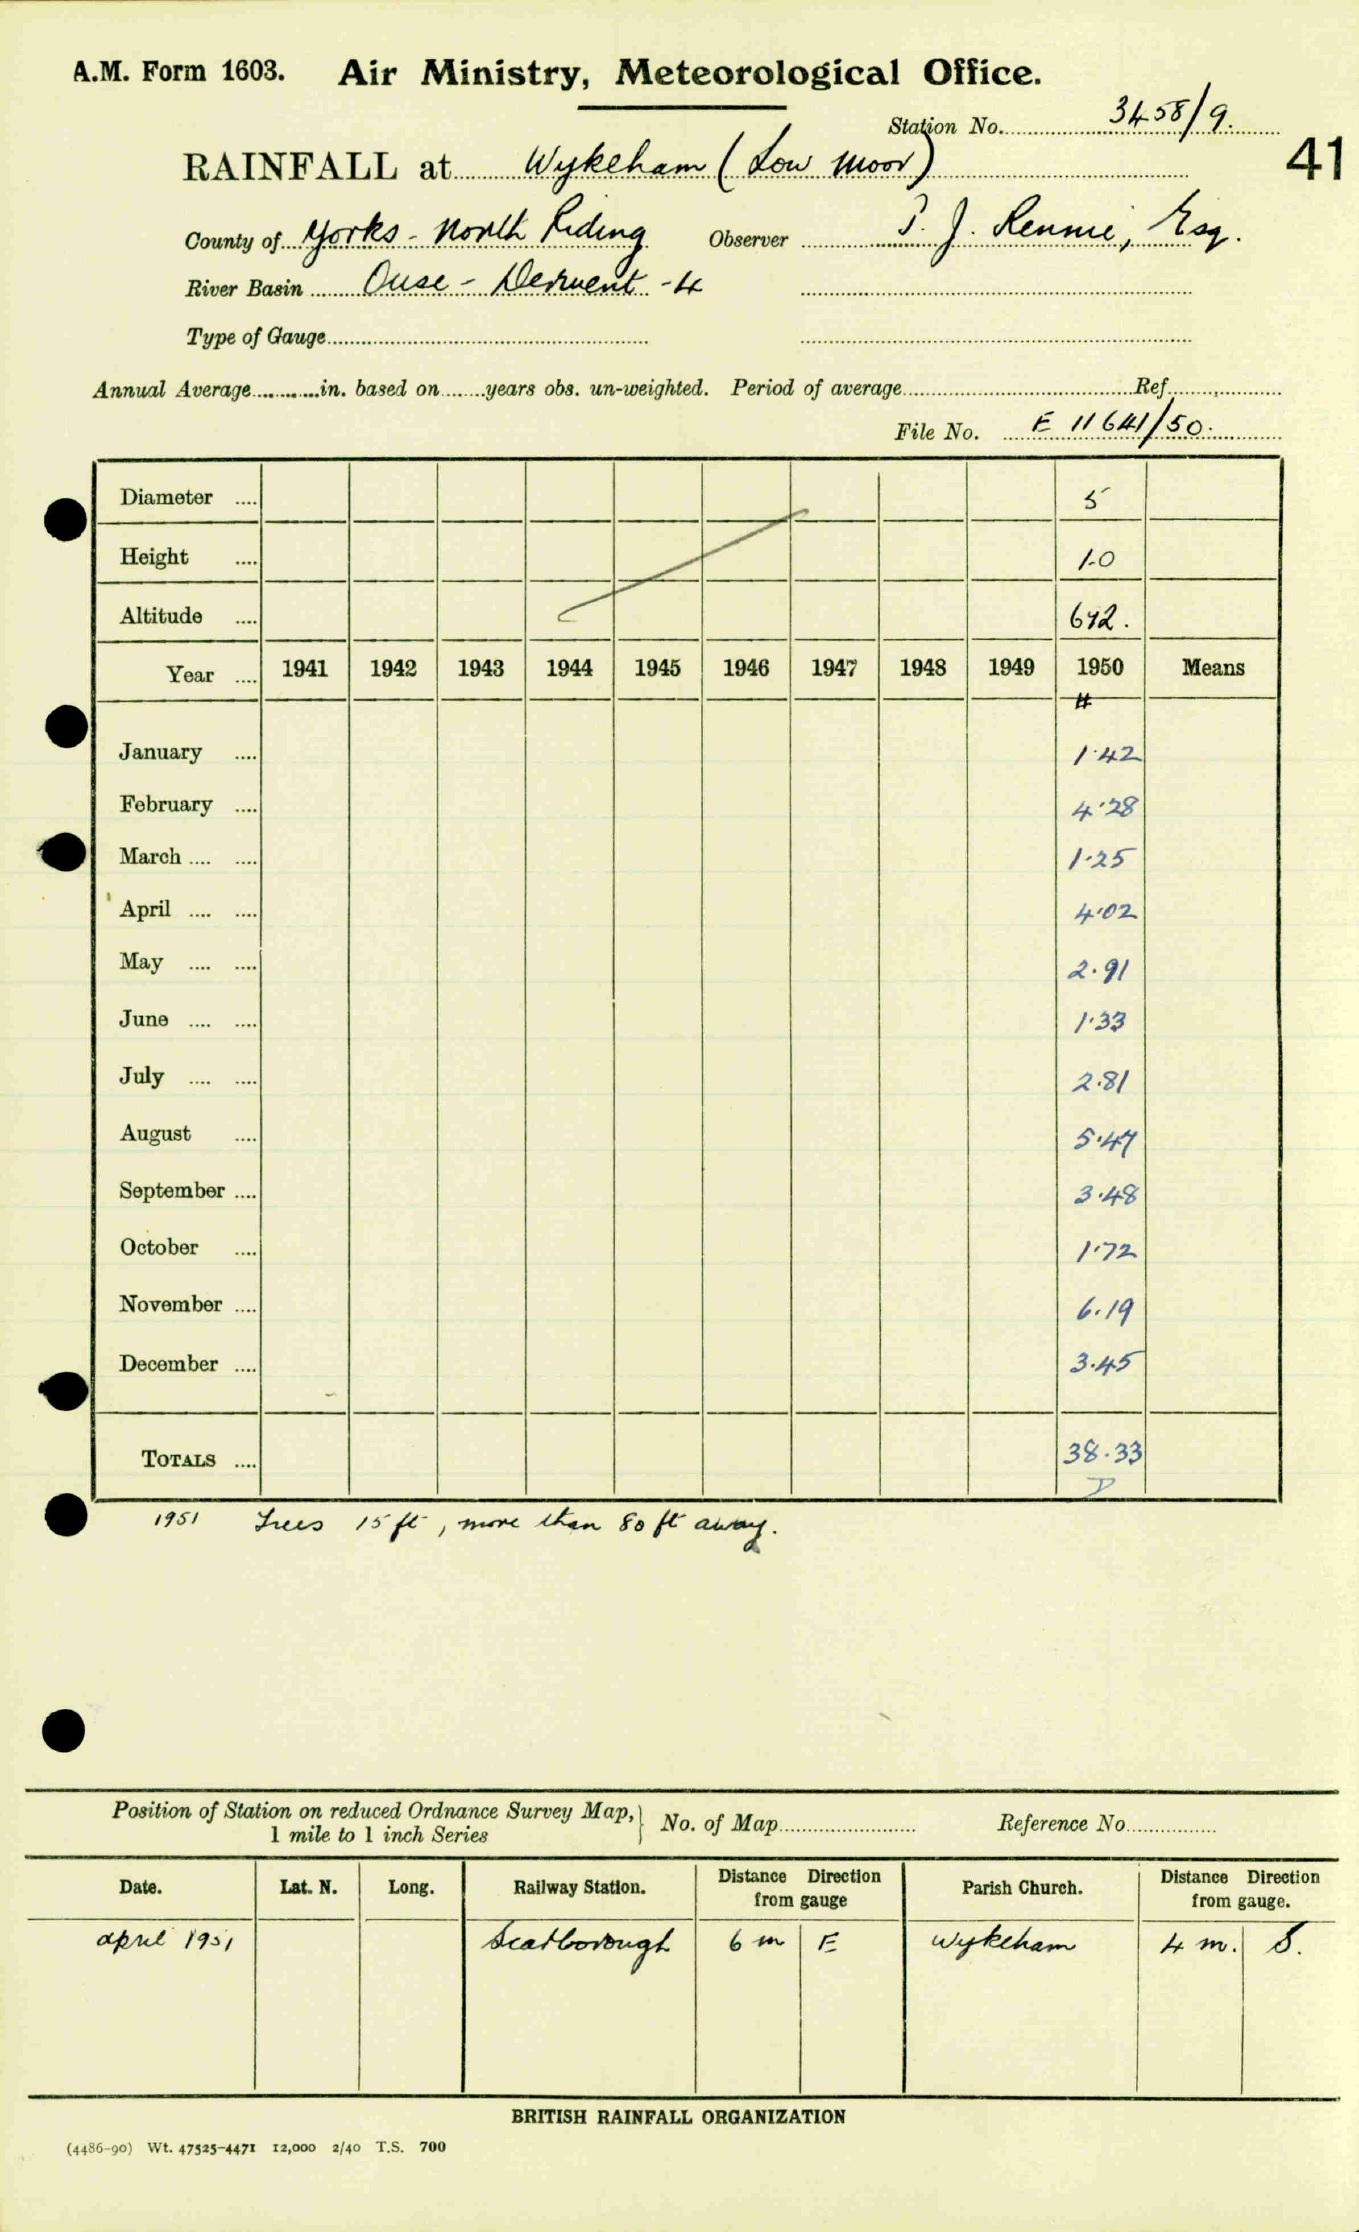 A.M. Form 1603. Air Ministry, Meteorological Office.
Station No. 3458/9.
41
RAINFALL at Wykeham (Low Moor)
County of Yorks - North Riding Observer J. Rennie, Esq.
River Basin Ouse - Derwent - 4
Type of Gauge
Annual Average in. based on years obs. un-weighted. Period of average Ref
File No. E 11641/50.
Diameter .... 5
Height .... 1.0
Altitude .... 642.
Year .... 1941 1942 1943 1944 1945 1946 1947 1948 1949 1950 Means
January .... 1.42
February .... 4.28
March .... .... 1.25
April .... .... 4.02
May .... .... 2.91
June .... .... 1.33
July .... .... 2.81
August .... 5.47
September .... 3.48
October .... 1.72
November .... 6.19
December .... 3.45
TOTALS .... 38.33
1951 Trees 15 ft, more than 80 ft away.
Position of Station on reduced Ordnance Survey Map, No. of Map Reference No.
1 mile to 1 inch Series
Date. Lat. N. Long. Railway Station. Distance Direction from gauge Parish Church. Distance Direction from gauge.
April 1951 Scarborough 6 m E Wykeham 4 m. S.
BRITISH RAINFALL ORGANIZATION
(4486-90) Wt. 47525-4471 12,000 2/40 T.S. 700